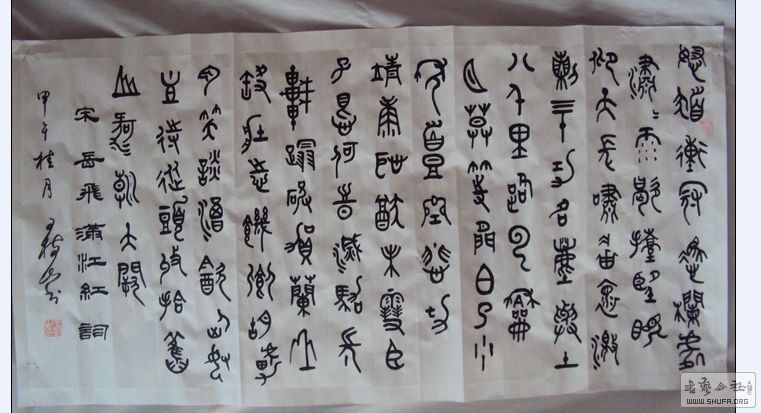 怒髮衝冠憑欄處
瀟瀟雨歇擡望眼
仰天長嘯壯懷激
烈三十功名塵與土
八千里路雲龢
月莫等閒白了少
年首空悲切
靖康恥猶未雪臣
子恨何時滅駕長
車蹋破賀蘭山
缺壯志飢餐胡虜
肉笑談渴飲匈奴
血待從頭收拾舊
山河朝天闕
宋岳飛滿江紅詞
甲午桂月
书艺公社
WWW.SHUFA.ORG